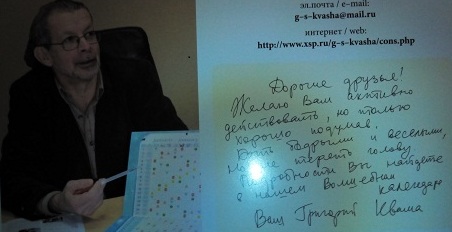 эл.почта / e-mail:
g-s-kvasha@mail.ru
интернет / web:
http://www.xsp.ru/g-s-kvasha/cons.php
Дорогие друзья!
Желаю Вам активно
действовать, но только
хорошо подумав,
быть бодрыми и веселыми,
но не терять голову.
Подробности Вы найдете
в нашем Волшебном
календаре
Ваш Григорий Кваша